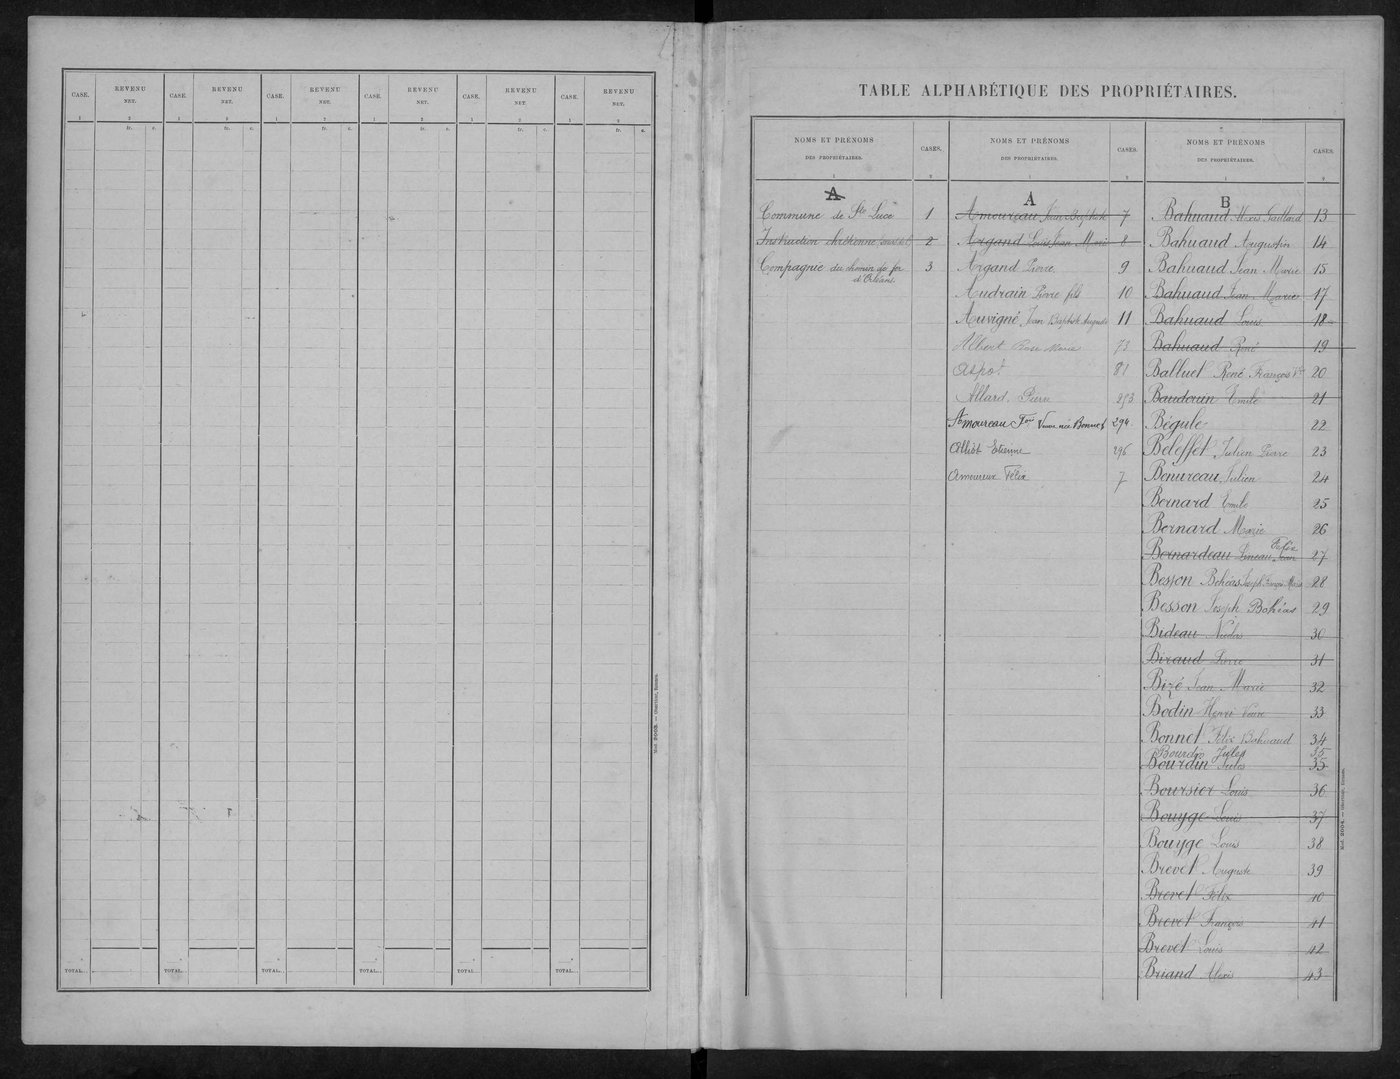 CASE. REVENU NET. CASE. REVENU NET. CASE. REVENU NET. CASE. REVENU NET. CASE. REVENU NET. CASE. REVENU NET.
1 2 1 2 1 2 1 2 1 2 1 2
fr. c. fr. c. fr. c. fr. c. fr. c. fr. c.
TOTAL. TOTAL. TOTAL. TOTAL. TOTAL. TOTAL.
Mod. 2003. — Oberthür, Rennes.
TABLE ALPHABÉTIQUE DES PROPRIÉTAIRES.
NOMS ET PRÉNOMS
DES PROPRIÉTAIRES.
CASES.
1 2
A
Commune de Ste Luce 1
Instruction chrétienne 2
Compagnie du chemin de fer 3
d'Orléans
NOMS ET PRÉNOMS
DES PROPRIÉTAIRES.
CASES.
1 2
A
Amoureau Jean Baptiste 7
Argand Louis Jean Marie 8
Argand Pierre 9
Audrain Pierre fils 10
Auvigné Jean Baptiste Auguste 11
Albert Rose Marie 73
Aspot 81
Allard Pierre 293
Amoureau Fçois Veuve née Bonnet 294
Alliot Etienne 296
Amoureux Félix 7
NOMS ET PRÉNOMS
DES PROPRIÉTAIRES.
CASES.
1 2
B
Bahuaud Alexis Gaillard 13
Bahuaud Augustin 14
Bahuaud Jean Marie 15
Bahuaud Jean Marie 17
Bahuaud Louis 18
Bahuaud René 19
Balluet René François 20
Baudouin Emile 21
Bégule 22
Beleffet Julien Pierre 23
Benureau Julien 24
Bernard Emile 25
Bernard Marie 26
Félix
Bernardeau Lineau Jean 27
Besson Bohéas Joseph François Marie 28
Besson Joseph Bohéas 29
Bideau Nicolas 30
Biraud Pierre 31
Bizé Jean Marie 32
Bodin Henri Veuve 33
Bonnet Félix Bahuaud 34
Bourdin Jules 35
Bourdin Jules 35
Boursier Louis 36
Bouyge Louis 37
Bouyge Louis 38
Brevet Auguste 39
Brevet Félix 40
Brevet François 41
Brevet Louis 42
Briand Alexis 43
Mod. 2004. — Oberthür, Rennes.